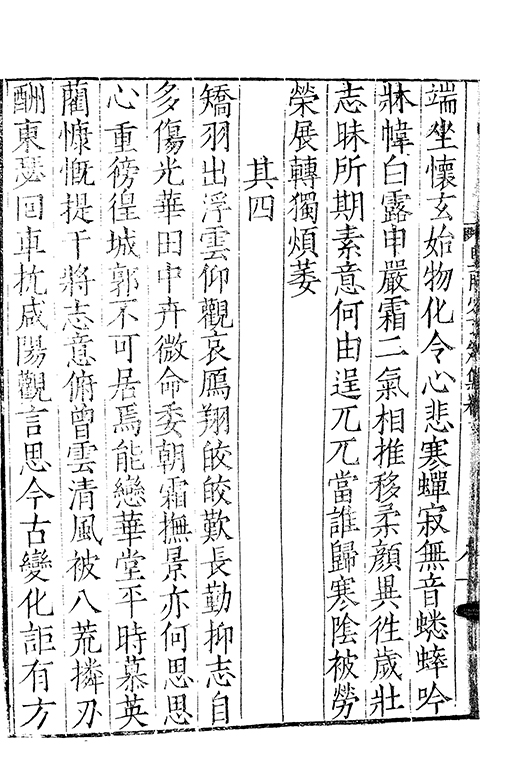 端坐懷玄始物化令心悲寒蟬寂無音蟋蟀吟
牀幃白露申嚴霜二氣相推移柔顔異徃歲壯
志昧所期素意何由逞兀兀當誰歸寒陰被勞
榮展轉獨煩萎
其四
矯羽出浮雲仰觀哀鴈翔皎皎歎長勤抑志自
多傷光華田中卉微命委朝霜撫景亦何思思
心重徬徨城郭不可居焉能戀華堂平時慕英
藺慷慨提干將志意俯曾雲清風被八荒擕刃
酬東瑟回車抗咸陽觀言思今古變化詎有方